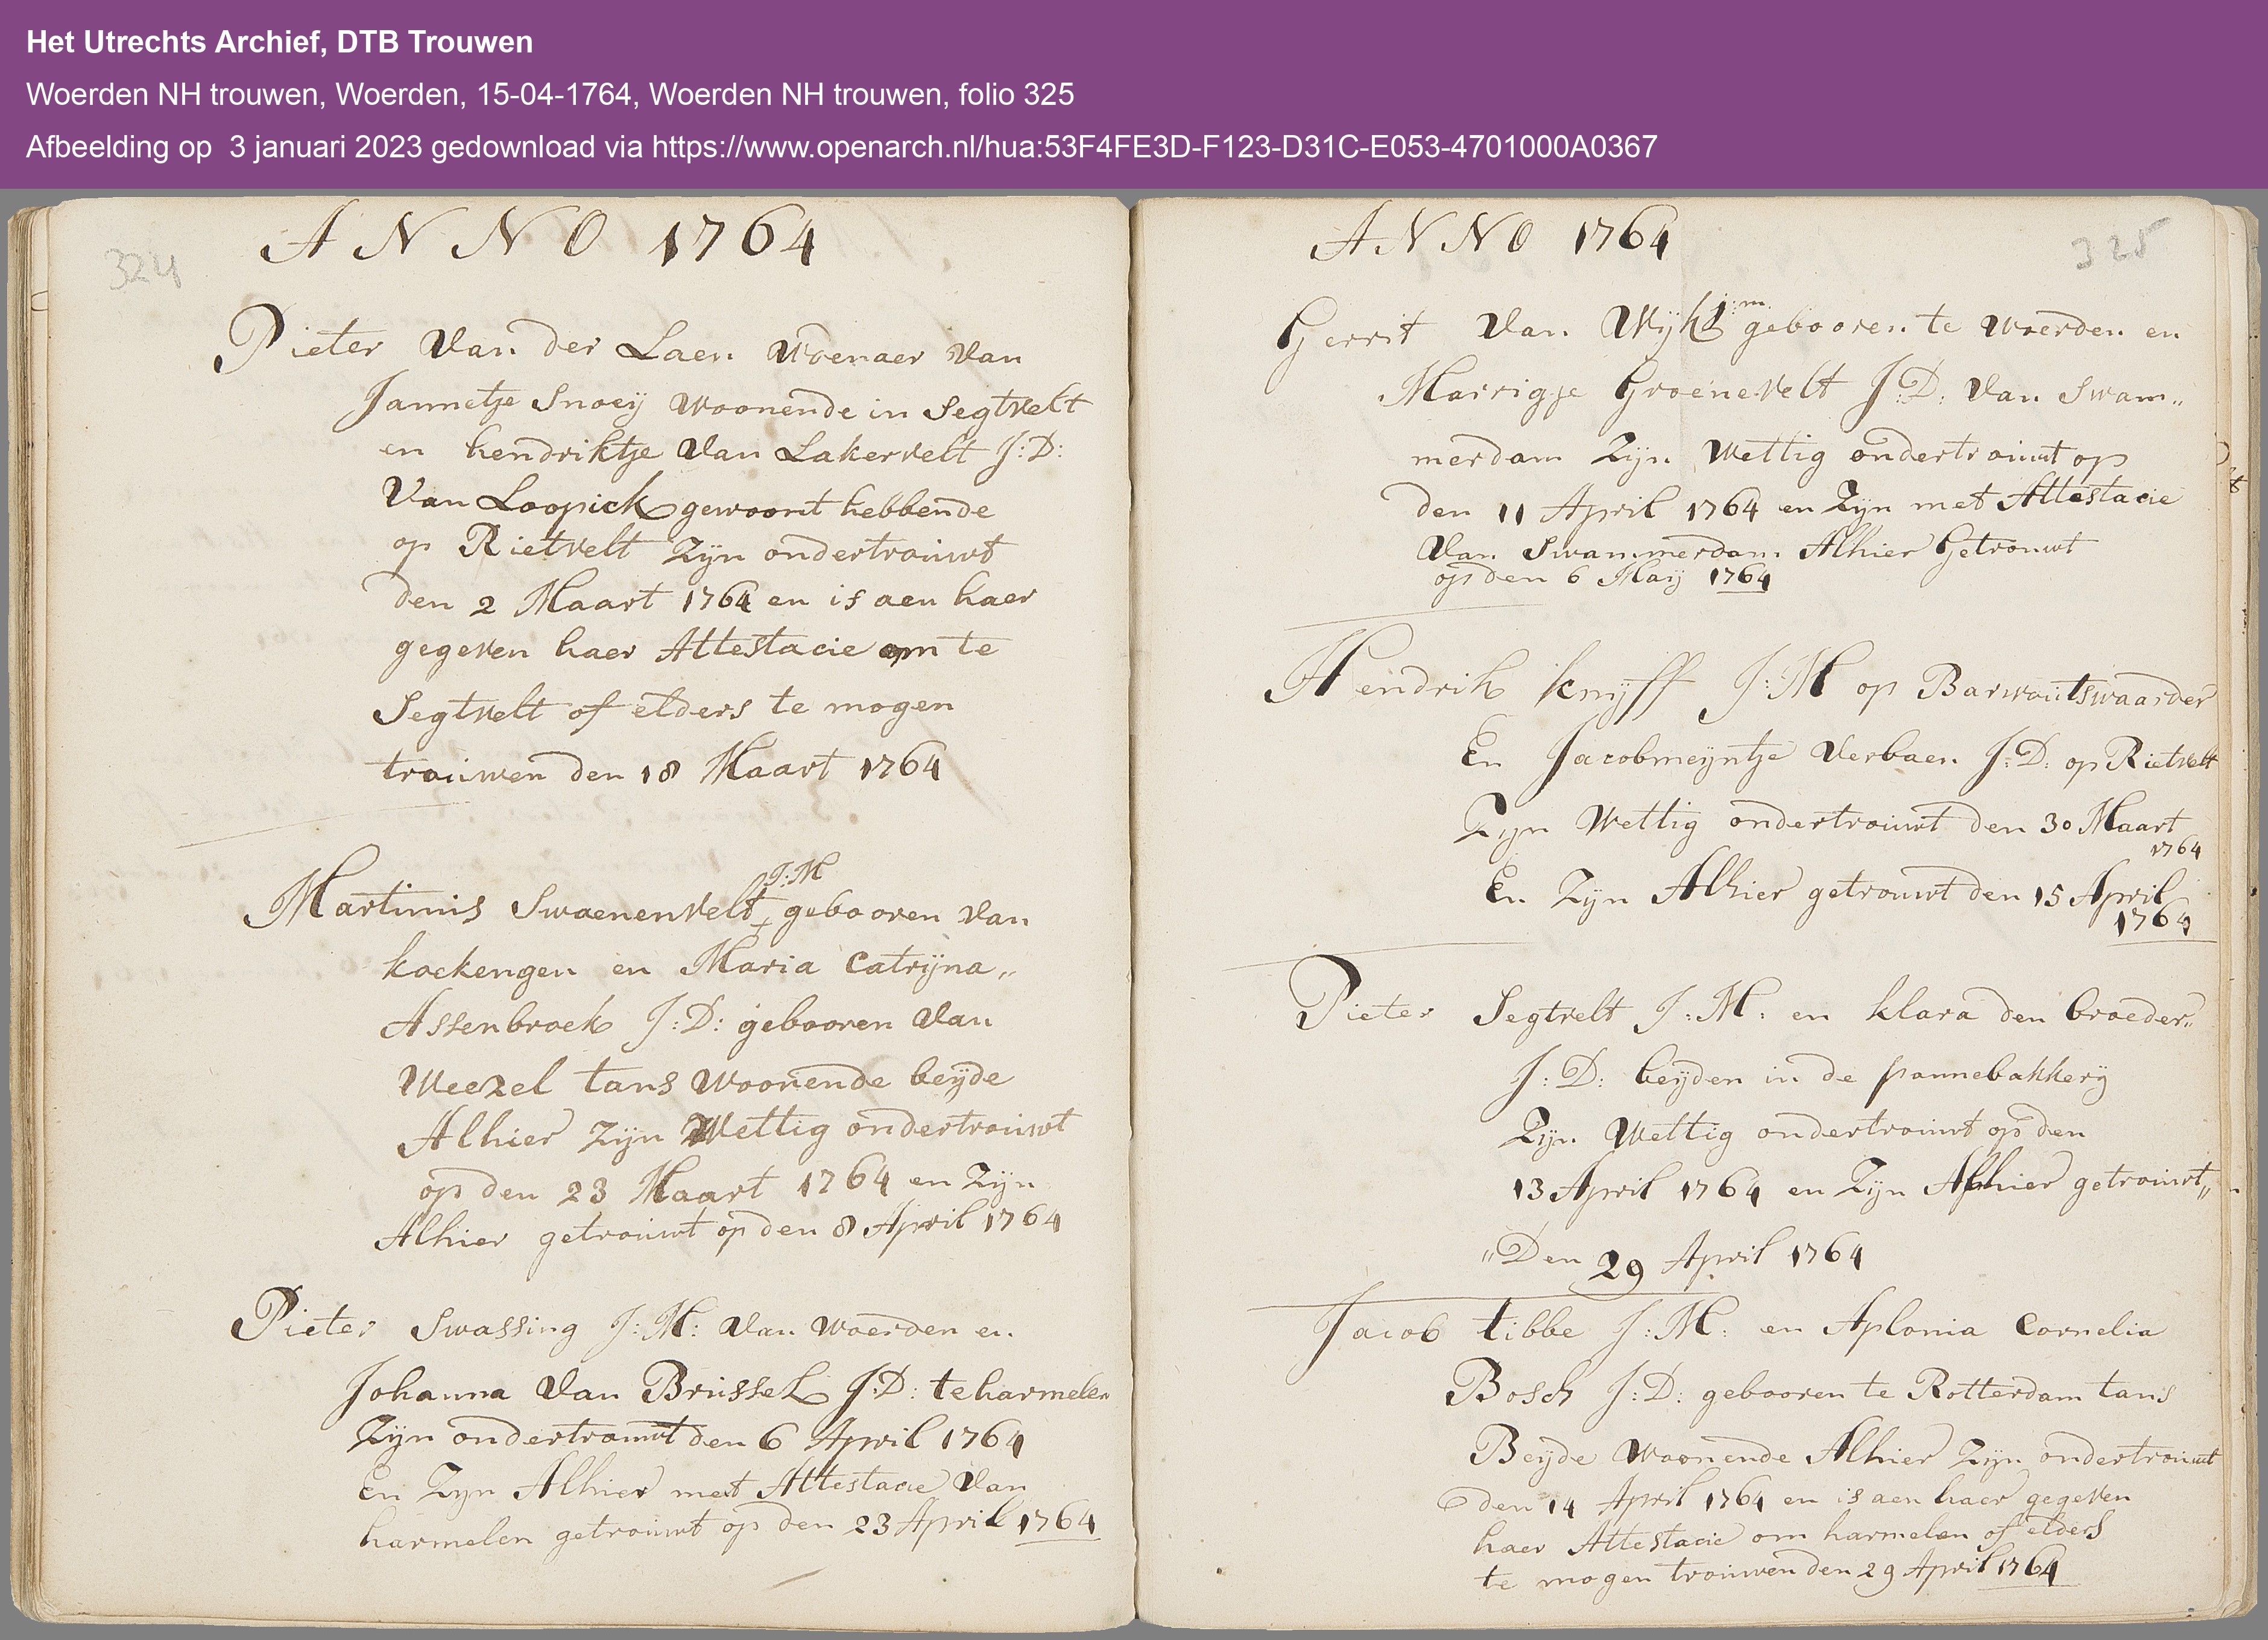 Het Utrechts Archief, DTB Trouwen
Woerden NH trouwen, Woerden, 15-04-1764, Woerden NH trouwen, folio 325
Afbeelding op  3 januari 2023 gedownload via https://www.openarch.nl/hua:53F4FE3D-F123-D31C-E053-4701000A0367
324
ANNO 1764
Pieter Van der Laen Wvenaer Van
Jannetje Snoeij Woonende in Segtvelt
en hendriktje Van Lakervelt J:D:
Van Loopick gewoont hebbende
op Rietvelt Zijn ondertrouwt
den 2 Maart 1764 en is aen haer
gegeven haer Attestacie om te
Segtvelt of elders te mogen
trouwen den 18 Maart 1764
J:M
Martinus Swaenenvelt gebooren van
kockengen en Maria Catrijna„
Assenbroek J:D: gebooren Van
Weezel tans Woonende beijde
Alhier Zijn Wettig ondertrouwt
op den 23 Maart 1764 en Zijn
Alhier getrouwt op den 8 April 1764
Pieter Swassing J:M: Van Woerden en
Johanna Van Brussel J:D: te harmelen
Zijn ondertrouwt den 6 April 1764
En Zijn Alhier met Attestacie Van
harmelen getrouwt op den 23 April 1764
325
ANNO 1764
j:m
Gerrit Van Wijk gebooren te Woerden en
Marrigje Groenevelt J:D: Van Swam„
merdam Zijn Wettig ondertrouwt op
den 11 April 1764 en Zijn met Attestacie
Van Swammerdam Alhier Getrouwt
op den 6 Maij 1764
Hendrik knijff J:M op Barwoutswaarder
En Jacobmeijntje Verbaen J:D: op Rietvelt
Zijn Wettig ondertrouwt den 30 Maart
1764
En Zijn Alhier getrouwt den 15 April
1764
Pieter Segtvelt J:M: en klara den broeder„
J:D: beijden in de pannebakkerij
Zijn Wettig ondertrouwt op den
13 April 1764 en Zijn Alhier getrouwt„
„Den 29 April 1764
Jacob tibbe J:M: en Aplonia Cornelia
Bosch J:D: gebooren te Rotterdam tans
Beijde Woonende Alhier Zijn ondertrouwt
den 14 April 1764 en is aen haer gegeven
haer Attestacie om harmelen of elders
te mogen trouwen den 29 April 1764